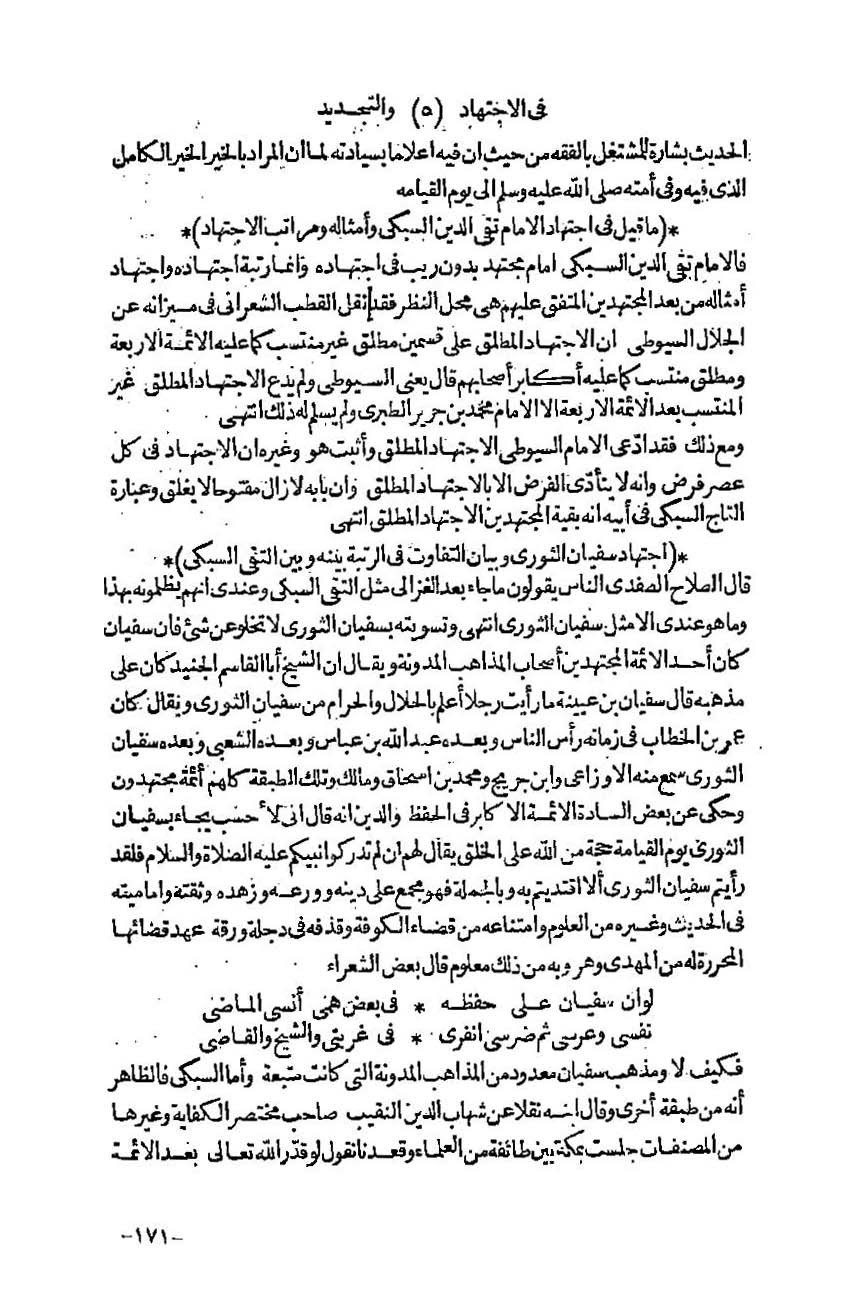 فى الاجتهاد (٥) والتجديد
الحديث بشارة للمشتغل بالفقه من حيث ان فيه اعلاما بسيادته لما ان المراد بالخير الخير الكامل
الذى فيه وفى أمته صلى الله عليه وسلم الى يوم القيامه
*(ماقيل فى اجتهاد الامام تقى الدين السبكى وأمثاله ومراتب الاجتهاد)*
فالامام تقى الدين السبكى امام مجتهد بدون ريب فى اجتهاده وانما رتبة اجتهاده واجتهاد
أمثاله من بعد المجتهدين المتفق عليهم هى محل النظر فقد نقل القطب الشعرانى فى ميزانه عن
الجلال السيوطى ان الاجتهاد المطلق على قسمين مطلق غير منتسب كما عليه الائمة الاربعة
ومطلق منتسب كما عليه أكابر أصحابهم قال يعنى السيوطى ولم يدع الاجتهاد المطلق غير
المنتسب بعد الائمة الاربعة الا الامام محمد بن جرير الطبرى ولم يسلم له ذلك انتهى
ومع ذلك فقد ادّعى الامام السيوطى الاجتهاد المطلق وأثبت هو وغيره ان الاجتهاد فى كل
عصر فرض وانه لا يتأدّى الفرض الا بالاجتهاد المطلق وان بابه لازال مفتوحا لا يغلق وعبارة
التاج السبكى فى أبيه انه بقية المجتهدين الاجتهاد المطلق انتهى
*(اجتهاد سفيان الثورى وبيان التفاوت فى الرتبة بينه وبين التقى السبكى)*
قال الصلاح الصفدى الناس يقولون ماجاء بعد الغزالى مثل التقى السبكى وعندى انهم يظلمونه بهذا
وما هو عندى الا مثل سفيان الثورى انتهى وتسويته بسفيان الثورى لا تخلو عن شئ فان سفيان
كان أحد الائمة المجتهدين أصحاب المذاهب المدونة ويقال ان الشيخ أبا القاسم الجنيد كان على
مذهبه قال سفيان بن عيينة ما رأيت رجلا أعلم بالحلال والحرام من سفيان الثورى ويقال كان
عمر بن الخطاب فى زمانه رأس الناس وبعده عبد الله بن عباس وبعده الشعبى وبعده سفيان
الثورى سمع منه الاوزاعى وابن جريج ومحمد بن اسحاق ومالك وتلك الطبقة كلهم أئمة مجتهدون
وحكى عن بعض السادة الائمة الاكابر فى الحفظ والدين انه قال انى لأحسب يجاء بسفيان
الثورى يوم القيامة حجة من الله على الخلق يقال لهم ان لم تدركوا نبيكم عليه الصلاة والسلام فلقد
رأيتم سفيان الثورى ألا اقتديتم به وبالجملة فهو مجمع على دينه وورعه وزهده وثقته وامامیته
فى الحديث وغيره من العلوم وامتناعه من قضاء الكوفة وقذفه فى دجلة ورقة عهد قضائها
المحررة له من المهدى وهروبه من ذلك معلوم قال بعض الشعراء
لو ان سفيان على حفظه * فى بعض همى أنسى الماضى
نفسى وعرسى ثم ضرسى انفرى * فى غربتى والشيخ والقاضى
فكيف لا ومذهب سفيان معدود من المذاهب المدونة التى كانت متبعة وأما السبكى فالظاهر
أنه من طبقة أخرى وقال ابنه نقلا عن شهاب الدين النقيب صاحب مختصر الكفاية وغيرها
من المصنفات جلست بمكة بين طائفة من العلماء وقعدنا نقول لو قدّر الله تعالى بعد الائمة
-١٧١-